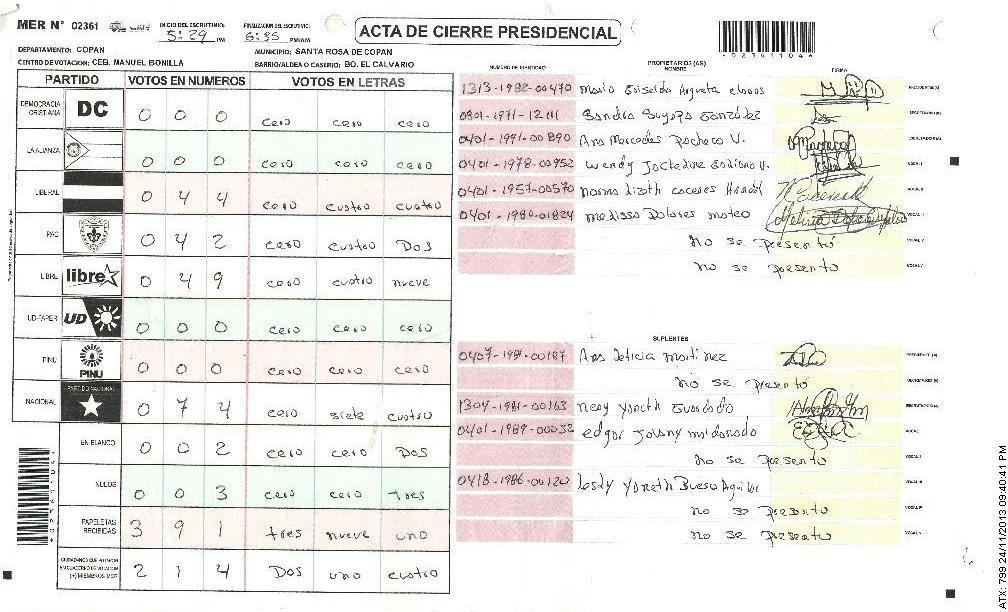 MER N° 02361
INICIO DEL ESCRUTINIO: 5:29 PM
FINALIZACION DEL ESCRUTINIO: 6:35 PM/AM
ACTA DE CIERRE PRESIDENCIAL
DEPARTAMENTO: COPAN
MUNICIPIO: SANTA ROSA DE COPAN
CENTRO DE VOTACION: CEB. MANUEL BONILLA
BARRIO/ALDEA O CASERIO: BO. EL CALVARIO
PARTIDO VOTOS EN NUMEROS VOTOS EN LETRAS
DEMOCRACIA CRISTIANA DC 0 0 0 cero cero cero
LA ALIANZA 0 0 0 cero cero cero
LIBERAL 0 4 4 cero cuatro cuatro
PAC 0 4 2 cero cuatro Dos
LIBRE libre 0 4 9 cero cuatro nueve
UD-FAPER UD 0 0 0 cero cero cero
PINU PINU 0 0 0 cero cero cero
NACIONAL PARTIDO NACIONAL 0 7 4 cero siete cuatro
EN BLANCO 0 0 2 cero cero Dos
NULOS 0 0 3 cero cero tres
PAPELETAS RECIBIDAS 3 9 1 tres nueve uno
CIUDADANOS QUE VOTARON EN CUADERNO DE VOTACION (+) MIEMBROS MER 2 1 4 Dos uno cuatro
NUMERO DE IDENTIDAD PROPIETARIOS (AS) NOMBRE FIRMA
1313-1982-00470 Mario Griselda Argueta PRESIDENTE (A)
0801-1971-12111 Sandra Suyapa González SECRETARIO (A)
0401-1991-00890 Ana Mercedes Pacheco V. ESCRUTADOR (A)
0401-1978-00952 Wendy V. VOCAL I
0401-1957-00570 norma lizeth caceres VOCAL II
0401-1980-01824 melissa Dolores mateo VOCAL III
No se presento VOCAL IV
No se presento VOCAL V
SUPLENTES
0407-1981-00187 Ana leticia martinez PRESIDENTE (A)
No se presento SECRETARIO (A)
1304-1981-00163 nery yaneth Guardado ESCRUTADOR (A)
0401-1989-00032 edgar maldonado VOCAL I
No se presento VOCAL II
0418-1986-00120 Lesdy yaneth Bueso Aguilar VOCAL III
no se presento VOCAL IV
no se presento VOCAL V
*02361104*
ATX: 799 24/11/2013 09:40:41 PM